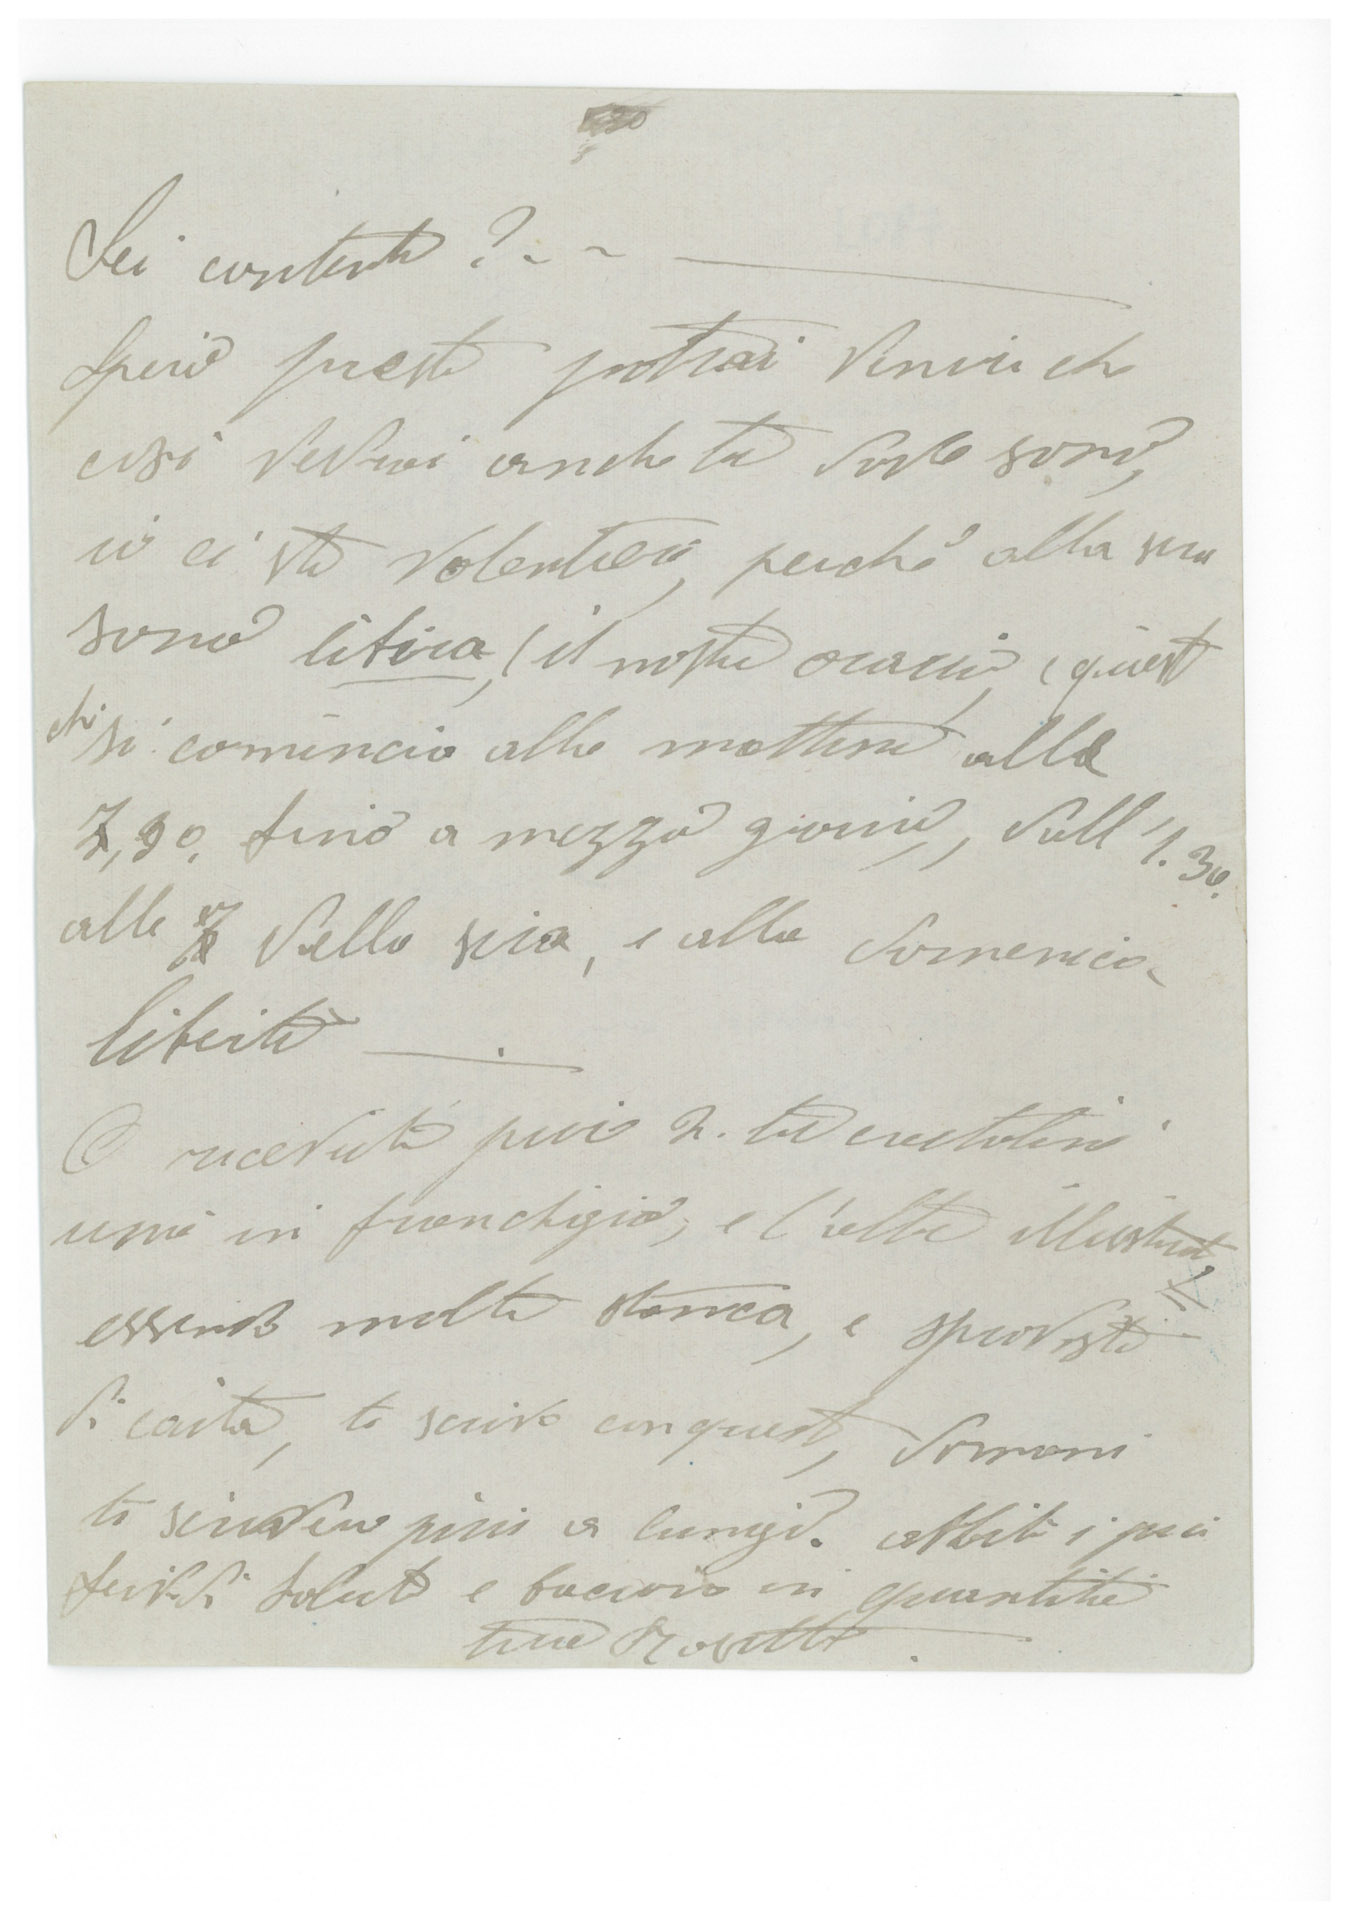 Sei contento? - ~
Spero presto potrai venire che
così vedrai anche tu dove sono,
io ci sto volentieri, perché alla sera
sono libera, (il nostro orario, e questo
chi si comincia alla mattina alle
7,30. fino a mezzo giorno, dall'1.30.
alle 7 della sera, e alla domenica
libertà .
O ricevuto pure 2. tue cartoline
una in franchigia, e l'altra illustrata,
essendo molto stanca, e sprovista
di carta, ti scrivo con questa, domani
ti scriverò più a lungo. abbiti i più
fervidi saluti e bacioni in quantità
tua Rosetta.